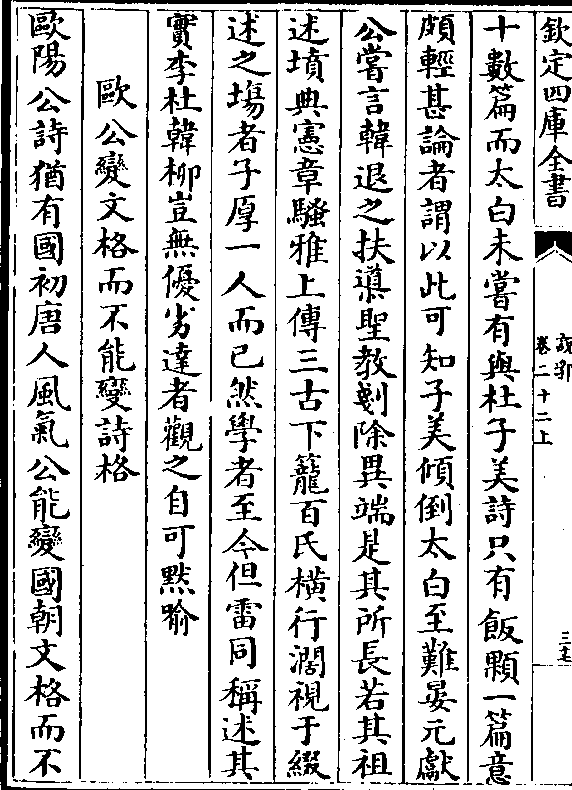 欽定四庫全書
說郛
卷二十二上
三十七
十數篇而太白未嘗有與杜子美詩只有飯顆一篇意
頗輕甚論者謂以此可知子美傾倒太白至難晏元獻
公嘗言韓退之扶導聖教剗除異端是其所長若其祖
述墳典憲章騷雅上傳三古下籠百氏橫行濶視于綴
述之塲者子厚一人而已然學者至今但雷同稱述其
實李杜韓栁豈無優劣達者觀之自可黙喻
歐公變文格而不能變詩格
歐陽公詩猶有國初唐人風氣公能變國朝文格而不